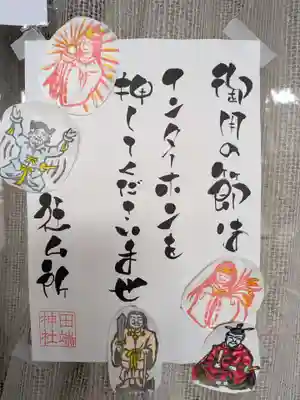 御用の節は
インターホンを
押してくださいませ
社ム所
田端神社